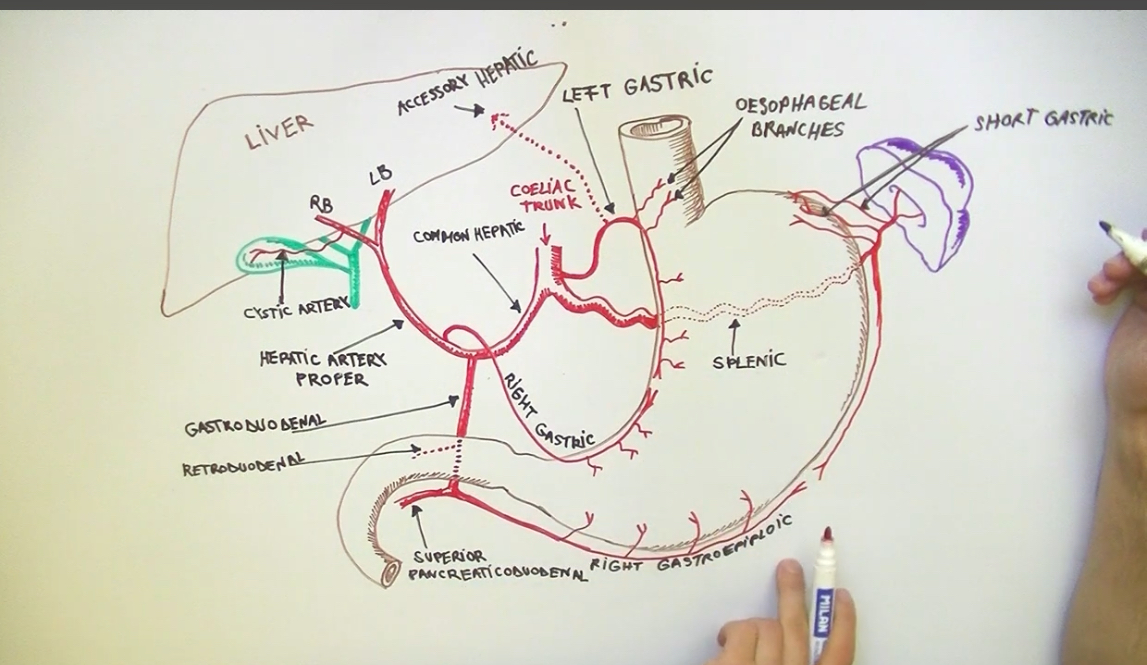 ACCESSORY HEPATIC
LEFT GASTRIC
OESOPHAGEAL
BRANCHES
SHORT GASTRIC
LIVER
LB
RB
COELIAC
TRUNK
COMMON HEPATIC
CYSTIC ARTERY
HEPATIC ARTERY
PROPER
SPLENIC
RIGHT GASTRIC
GASTRODUODENAL
RETRODUODENAL
SUPERIOR
PANCREATICODUODENAL
RIGHT GASTROEPIPLOIC
MILAN